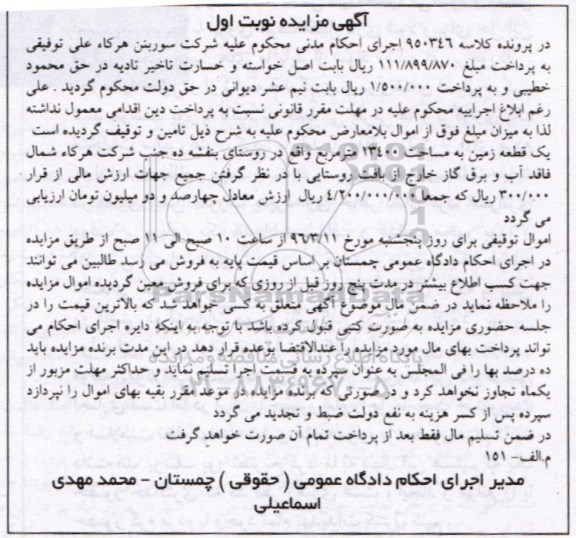 آگهی مزایده نوبت اول
در پرونده کلاسه ۹۵۰۳۴۶ اجرای احکام مدنی محکوم علیه شرکت سورین هرکاء علی توفیقی
به پرداخت مبلغ ۱۱۱/۸۹۹/۸۷۰ ریال بابت اصل خواسته و خسارت تاخیر تادیه در حق محمود
خطیبی و به پرداخت ۱/۵۰۰/۰۰۰ ریال بابت نیم عشر دیوانی در حق دولت محکوم گردید . علی
رغم ابلاغ اجراییه محکوم علیه در مهلت مقرر قانونی نسبت به پرداخت دین اقدامی معمول نداشته
لذا به میزان مبلغ فوق از اموال بلامعارض محکوم علیه به شرح ذیل تامین و توقیف گردیده است
یک قطعه زمین به مساحت ۱۳۴۰۰ مترمربع واقع در روستای بنفشه ده جنب شرکت هرکاء شمال
فاقد آب و برق گاز خارج از بافت روستایی با در نظر گرفتن جمیع جهات ارزش مالی از قرار
۳۰۰/۰۰۰ ریال که جمعا ۴/۲۰۰/۰۰۰/۰۰۰ ریال ارزش معادل چهارصد و دو میلیون تومان ارزیابی
می گردد
اموال توقیفی برای روز پنجشنبه مورخ ۹۶/۳/۱۱ از ساعت ۱۰ صبح الی ۱۱ صبح از طریق مزایده
در اجرای احکام دادگاه عمومی چمستان بر اساس قیمت پایه به فروش می رسد طالبین می توانند
جهت کسب اطلاع بیشتر در مدت پنج روز قبل از روزی که برای فروش معین گردیده اموال مزایده
را ملاحظه نماید در ضمن مال موضوع آگهی متعلق به کسی خواهد شد که بالاترین قیمت را در
جلسه حضوری مزایده به صورت کتبی قبول کرده باشد با توجه به اینکه دایره اجرای احکام می
تواند پرداخت بهای مال مورد مزایده را عندالاقتضا بوعده قرار دهد در این مدت برنده مزایده باید
ده درصد بها را فی المجلس به عنوان سپرده به قسمت اجرا تسلیم نماید و حداکثر مهلت مزبور از
یکماه تجاوز نخواهد کرد و در صورتی که برنده مزایده در موعد مقرر بقیه بهای اموال را نپردازد
سپرده پس از کسر هزینه به نفع دولت ضبط و تجدید می گردد
در ضمن تسلیم مال فقط بعد از پرداخت تمام آن صورت خواهد گرفت
م.الف- ۱۵۱
مدیر اجرای احکام دادگاه عمومی ( حقوقی ) چمستان – محمد مهدی
اسماعیلی
ParsNamadData
پایگاه اطلاع رسانی مناقصه و مزایده
۰۲۱-۸۸۳۴۹۶۷۰-۵